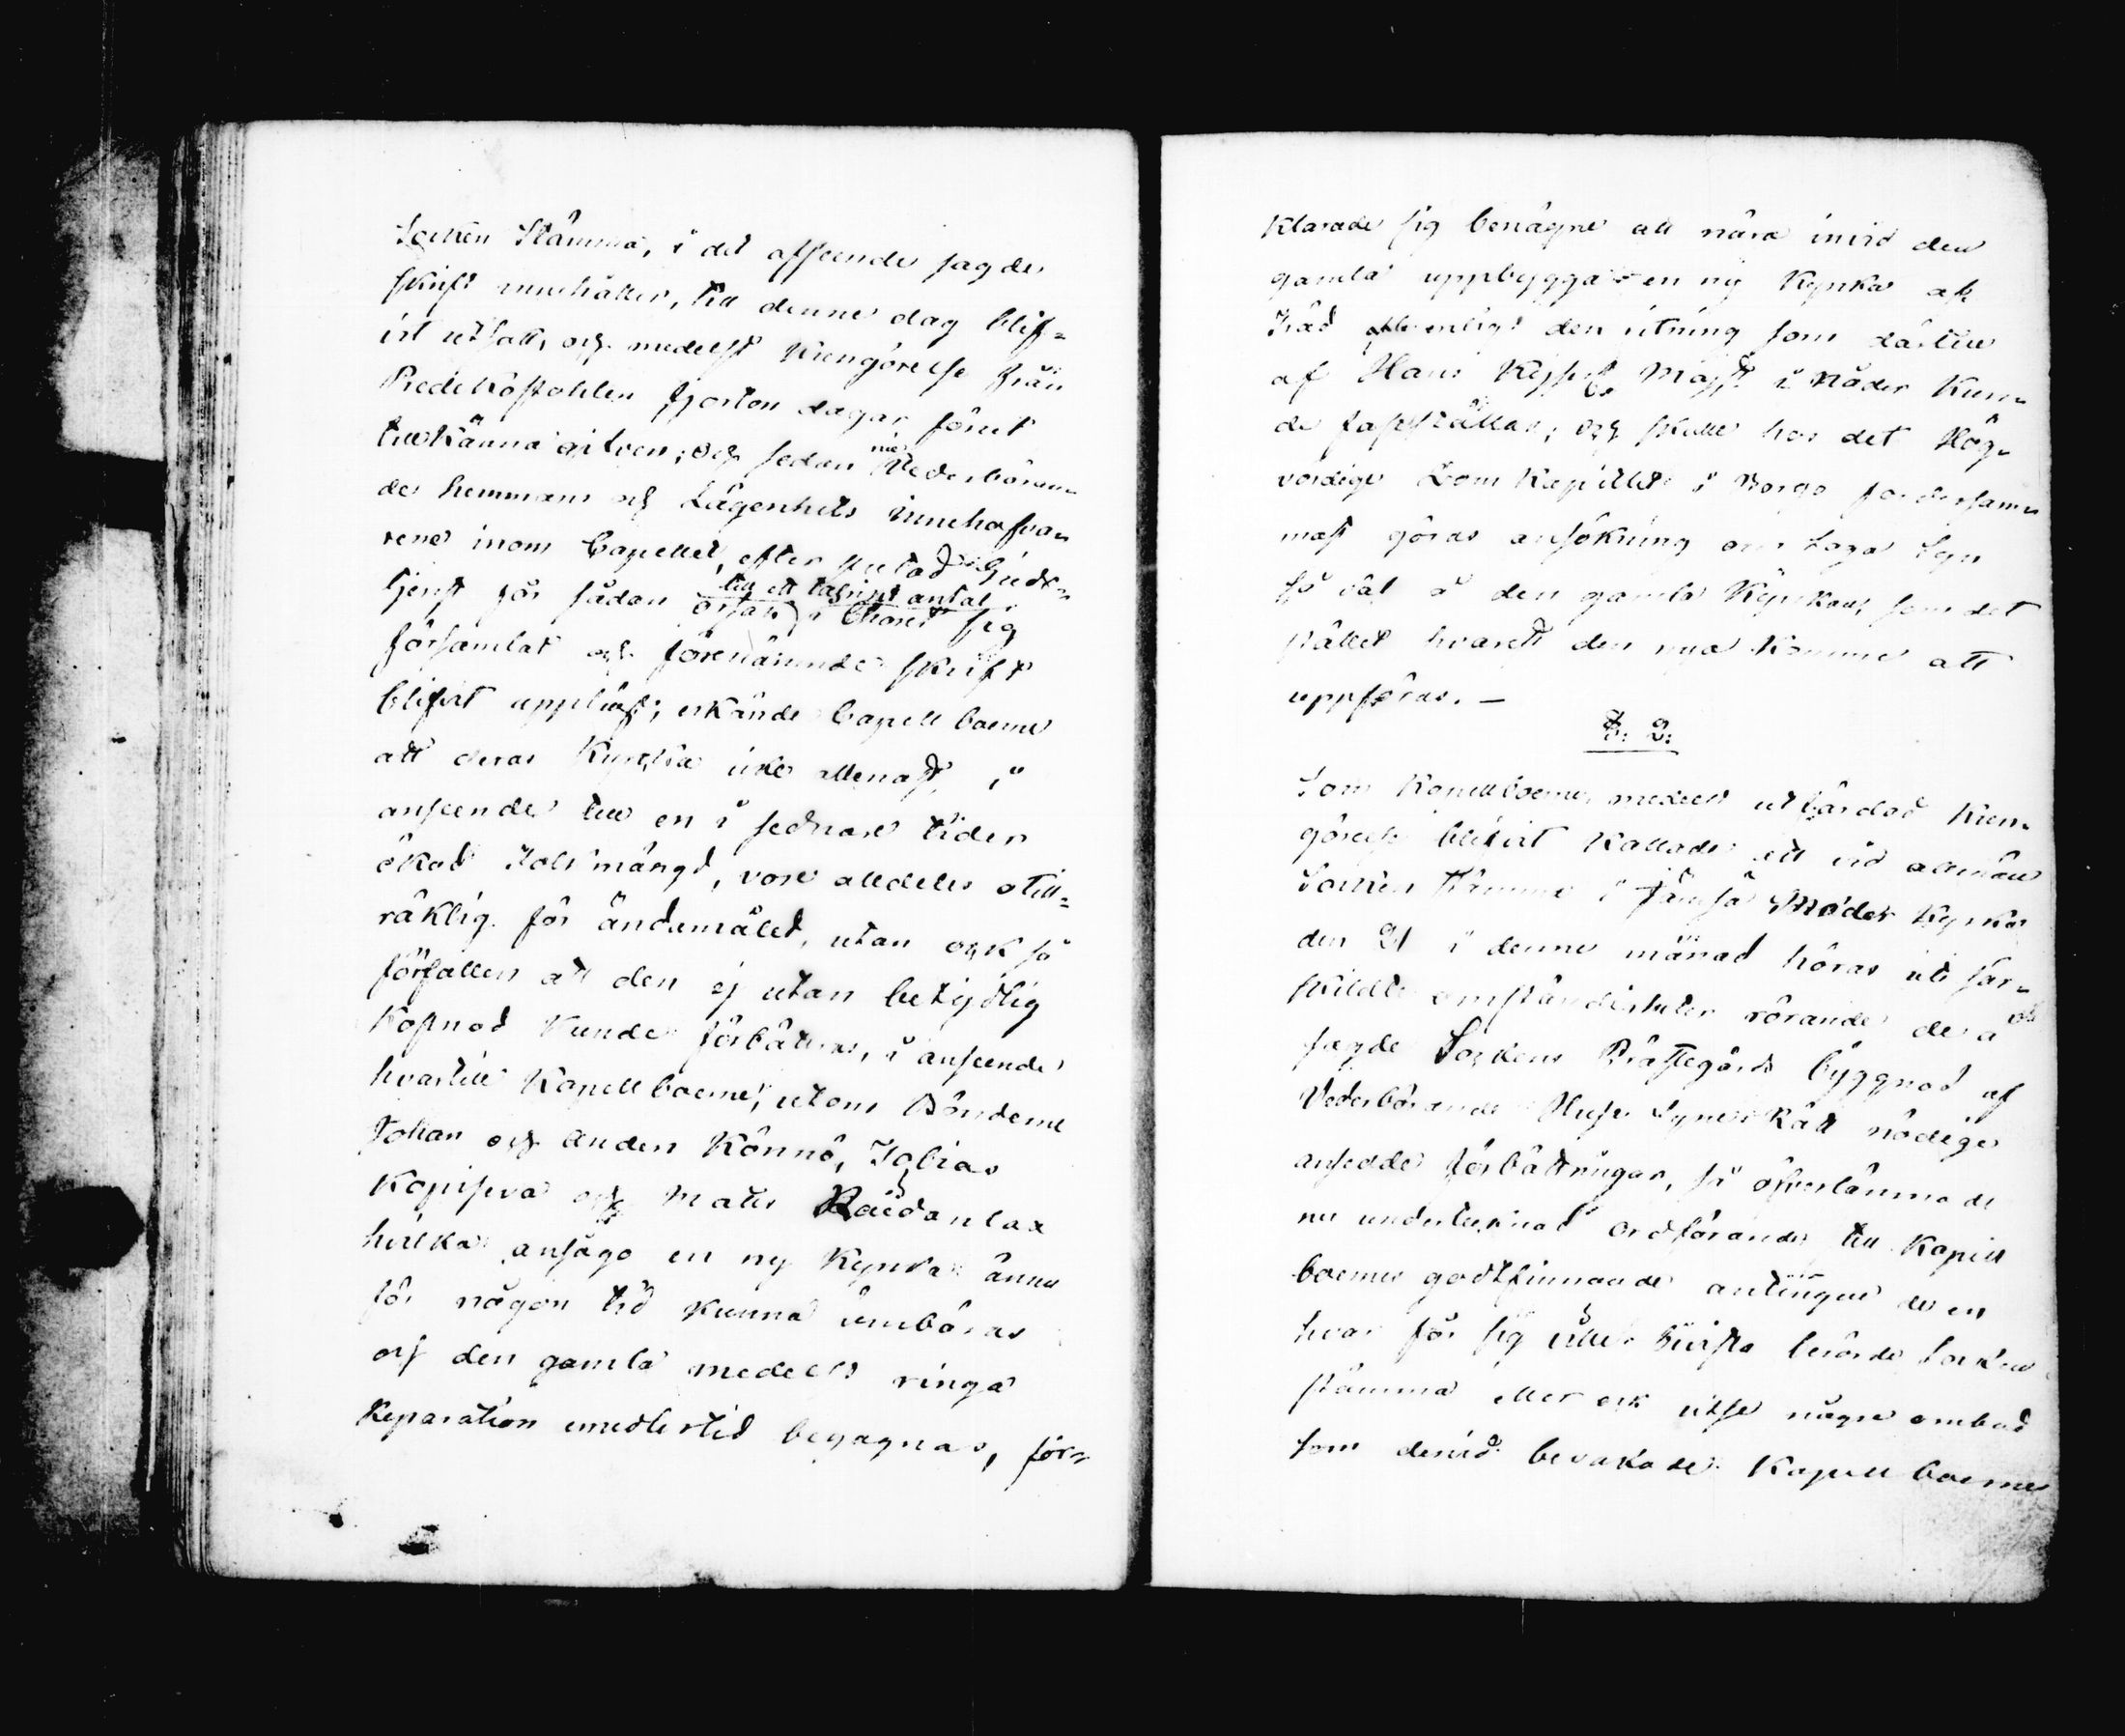 Socken Stämma, i det afseende sagde
skrift innehåller, till denne dag blif=
vit utsatt, och medelst Kungörelse från
Predikostohlen fjorton dagar förut
tillkänna gifven; och sedan Vederböran=
de hemmans och Lägenhets innehafva=
rene inom Capellet, efter slutad Guds=
tjenst för sådan orsak till ett talrikt antal i Choret sig
församlat och förenämnde skrift
blifvit uppläst; erkände Capell boerne
att deras Kyrka icke allenast, i
anseende till en i sednare tider
ökad Folkmängd, vore alldeles otill=
räklig för ändamålet, utan ock så
förfallen att den ej utan betydlig
Kostnad Kunde förbättras, i anseende
hvartill Kapellboerne, utom Bönderne
Johan och Anders Könnö, Tobias
Kopiseva och Matts Raidanlax
hvilka ansågo en ny Kyrka ännu
för någon tid Kunna umbäras
och den gamla medelst ringa
Reparation emedlertid begagnas, för=
Klarade sig benägne att nära invid den
gamla uppbygga en ny Kyrka af
Träd enligt den ritning som därtill
af Hans Kejserl. Majst. i Nåder Kun=
de fastställas; och skulle hos det Hög=
vördige Dom Kapitlet i Borgo fordersam=
mast göras ansökning om Laga Syn
så väl å den gamla Kyrkan, som det
stället hvarest den nya Komme att
uppföras. —
§. 2.
Som Kapellboerne medelst utfärdad Kun=
görelse blifvit Kallade att vid allmän
Socken stämma i Jämsä Moder Kyrka
den 21 i denne månad höras uti sär=
skildte omständigheter rörande de a
sagde Sockens Prästegårds byggnad af
Vederbörande Huse Syne Rätt nödige
ansedde förbättringar, så öfverlämnade
nu undertecknad ordförande till Kapell
boernes godtfinnande antingen de en
hvar för sig ville bivista berörde Socken
stämma eller ock utse någre ombud
som dervid bevakade Kapell boernes